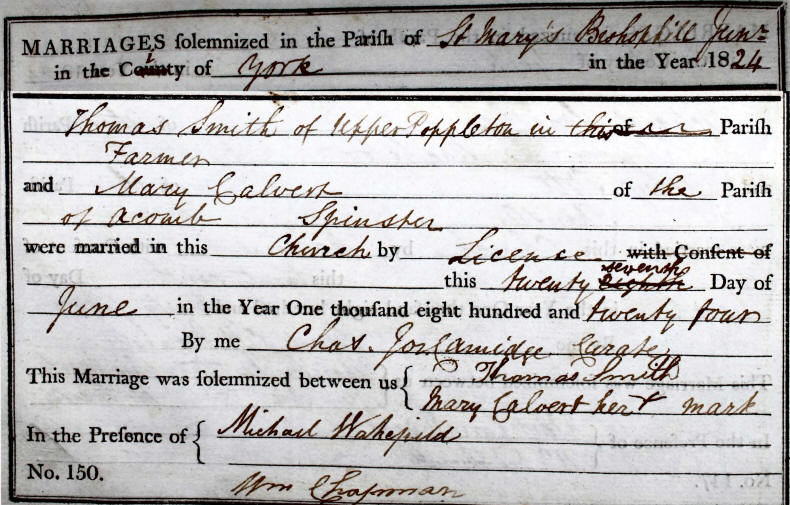 MARRIAGES solemnized in the Parish of St Mary's Bishophill Junr
in the City of York in the Year 1824
Thomas Smith of Upper Poppleton in this Parish
Farmer
and Mary Calvert of the Parish
of Acomb Spinster
were married in this Church by Licence with Consent of
this twenty seventh eighth Day of
June in the Year One thousand eight hundred and twenty four
By me Chas. Jos. Camidge Curate
This Marriage was solemnized between us { Thomas Smith
Mary Calvert her + mark
In the Presence of { Michael Wakefield
No. 150.
Wm Chapman